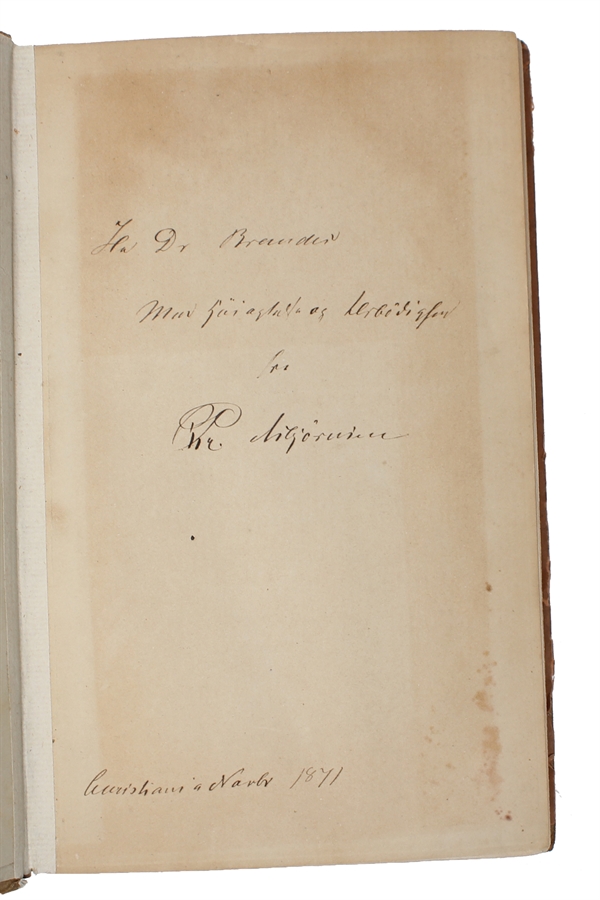 Hr Dr Brandes
Med Höiagtelse og Ærbödighed
fra
P Chr. Asbjörnsen
Christiania Novbr 1871